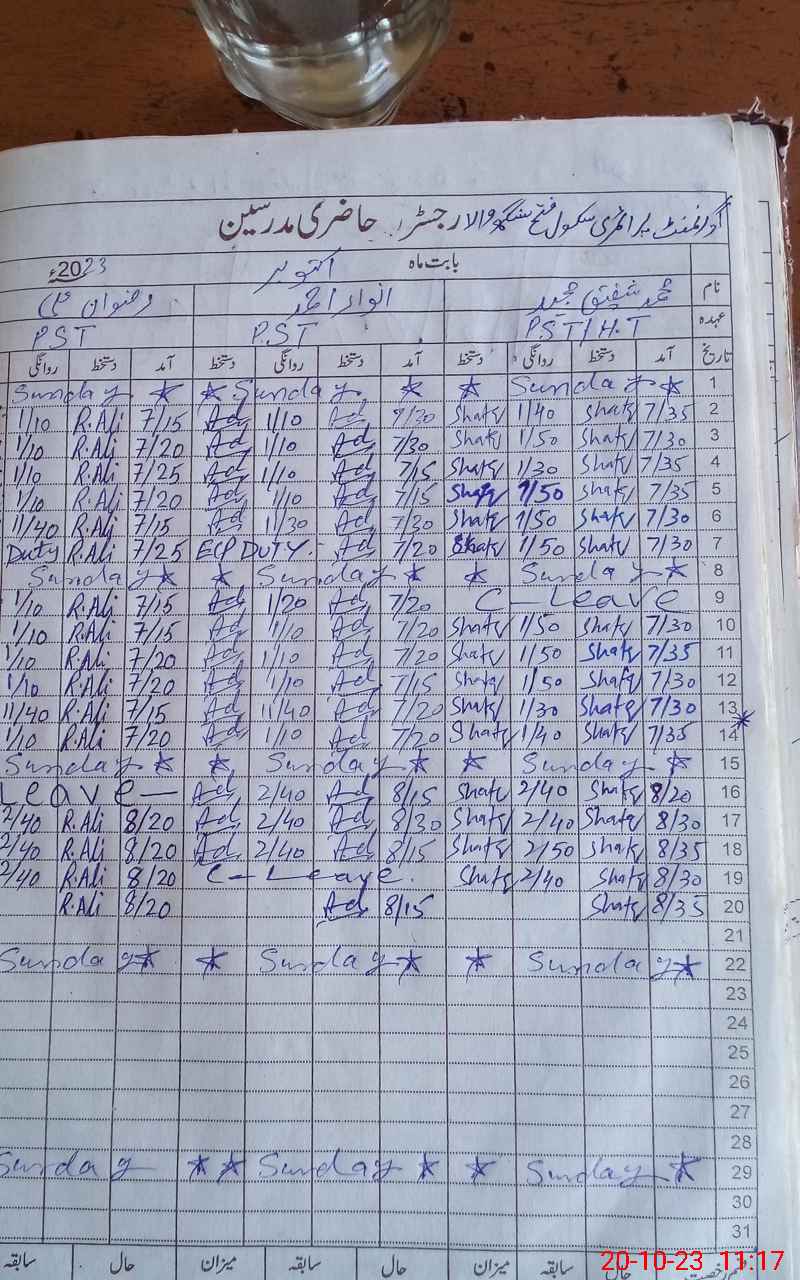 گورنمنٹ پرائمری سکول فتح سنگھ والا رجسٹر حاضری مدرسین
بابت ماہ اکتوبر 2023ء
نام محمد شفیق انوار احمد رضوان علی
عہدہ PST/H.T P.ST PST
تاریخ آمد دستخط روانگی دستخط آمد دستخط روانگی دستخط آمد دستخط روانگی
Sunday ★ ★ Sunday ★ ★ Sunday ★ 1
1/10 R.Ali 7/15 Ad 1/10 Ad 7/30 Shafq 1/40 Shafq 7/35 2
1/10 R.Ali 7/20 Ad 1/10 Ad 7/30 Shafq 1/50 Shafq 7/30 3
1/10 R.Ali 7/25 Ad 1/10 Ad 7/15 Shafq 1/30 Shafq 7/35 4
1/10 R.Ali 7/20 Ad 1/10 Ad 7/15 Shafq 1/50 Shafq 7/35 5
11/40 R.Ali 7/15 Ad 11/30 Ad 7/30 Shafq 1/50 Shafq 7/30 6
Duty R.Ali 7/25 ECP DUTY.- Ad 7/20 Shafq 1/50 Shafq 7/30 7
Sunday ★ ★ Sunday ★ ★ Sunday ★ 8
1/10 R.Ali 7/15 Ad 1/20 Ad 7/20 C-Leave 9
1/10 R.Ali 7/15 Ad 1/10 Ad 7/20 Shafq 1/50 Shafq 7/30 10
1/10 R.Ali 7/20 Ad 1/10 Ad 7/20 Shafq 1/50 Shafq 7/35 11
1/10 R.Ali 7/20 Ad 1/10 Ad 7/15 Shafq 1/50 Shafq 7/30 12
11/40 R.Ali 7/15 Ad 11/40 Ad 7/20 Shafq 1/30 Shafq 7/30 13
1/10 R.Ali 7/20 Ad 1/10 Ad 7/20 Shafq 1/40 Shafq 7/35 14
Sunday ★ ★ Sunday ★ ★ Sunday ★ 15
Leave— Ad 2/40 Ad 8/15 Shafq 2/40 Shafq 8/20 16
2/40 R.Ali 8/20 Ad 2/40 Ad 8/30 Shafq 2/40 Shafq 8/30 17
2/40 R.Ali 8/20 Ad 2/40 Ad 8/15 Shafq 2/50 Shafq 8/35 18
2/40 R.Ali 8/20 C-Leave. Shafq 2/40 Shafq 8/30 19
R.Ali 8/20 Ad 8/15 Shafq 8/35 20
21
Sunday ★ ★ Sunday ★ ★ Sunday ★ 22
23
24
25
26
27
28
Sunday ★ ★ Sunday ★ ★ Sunday ★ 29
30
31
حال سابقہ میزان حال سابقہ میزان حال سابقہ
20-10-23 11:17